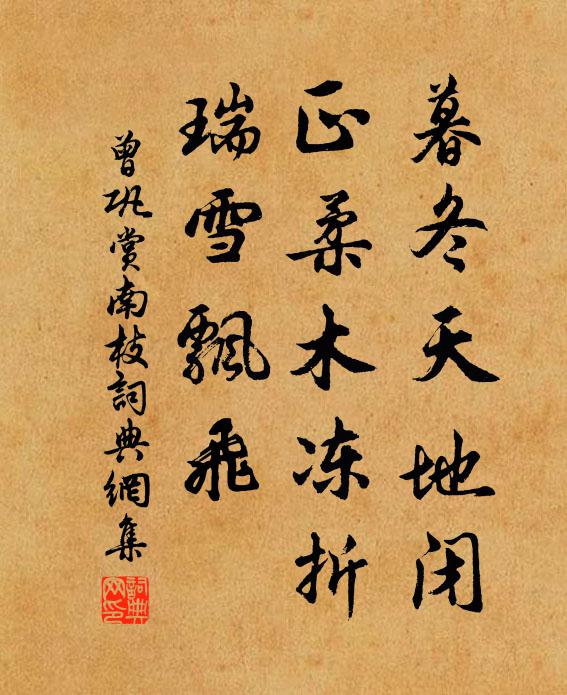 暮冬天地闭
正柔木冻折
瑞雪飄飛
曾巩赏南枝詞典網集
詞典网印